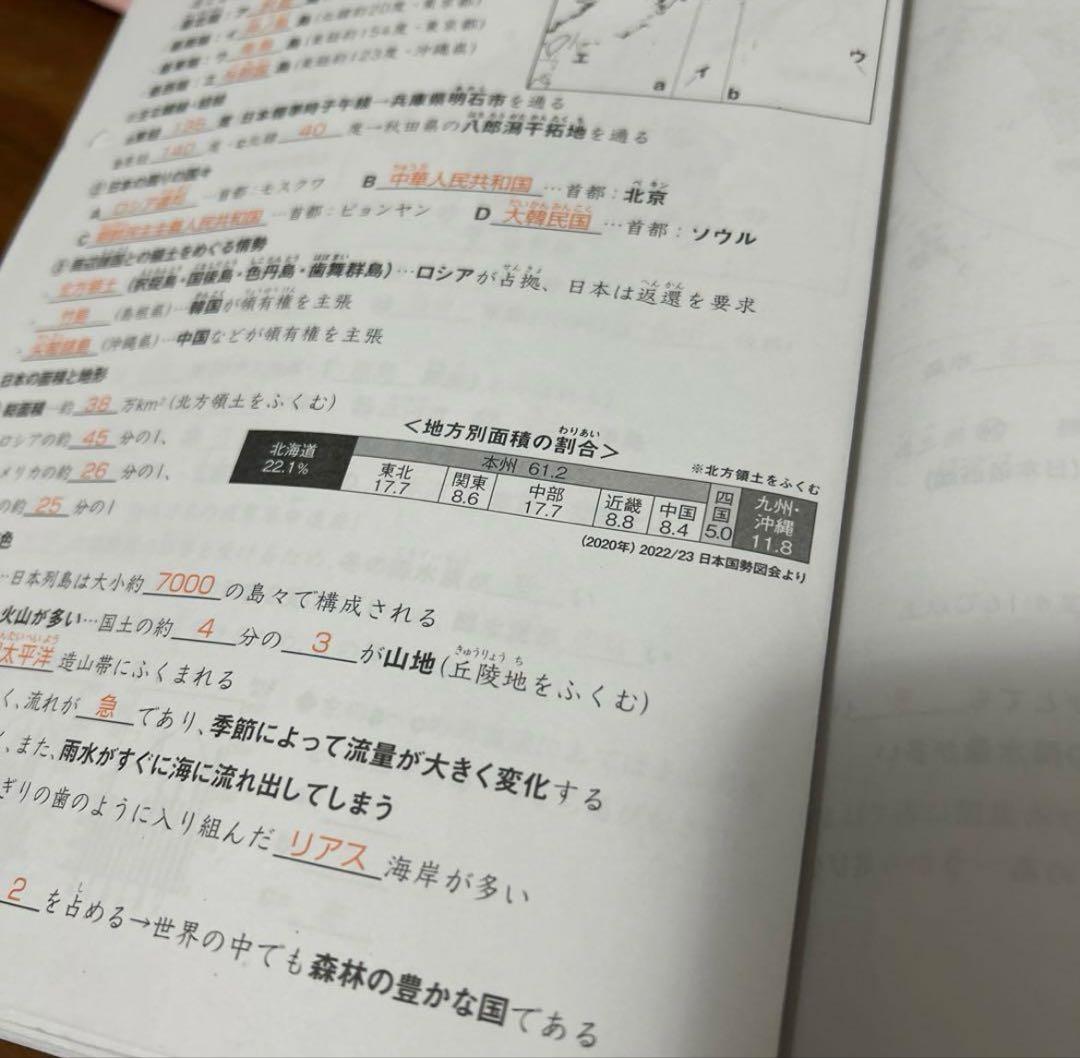 島(北緯約20度・東京都)
島(東経約154度・東京都)
島(東経約123度・沖縄県)
ウ
エ
イ
a
b
135 度・日本標準時子午線→兵庫県明石市を通る
140 度・北緯 40 度→秋田県の八郎潟干拓地を通る
②日本の周りの国々
A ロシア連邦 …首都:モスクワ B 中華人民共和国 …首都:北京
C 朝鮮民主主義人民共和国 …首都:ピョンヤン D 大韓民国 …首都:ソウル
③周辺諸国との領土をめぐる情勢
・北方領土(択捉島・国後島・色丹島・歯舞群島)…ロシアが占拠、日本は返還を要求
・竹島(島根県)…韓国が領有権を主張
・尖閣諸島(沖縄県)…中国などが領有権を主張
日本の面積と地形
総面積…約 38 万km²(北方領土をふくむ)
ロシアの約 45 分の1、
メリカの約 26 分の1、
の約 25 分の1
<地方別面積の割合>
※北方領土をふくむ
北海道 22.1%
本州 61.2
東北 17.7
関東 8.6
中部 17.7
近畿 8.8
中国 8.4
四国 5.0
九州・沖縄 11.8
(2020年) 2022/23 日本国勢図会より
色
…日本列島は大小約 7000 の島々で構成される
火山が多い…国土の約 4 分の 3 が山地(丘陵地をふくむ)
太平洋 造山帯にふくまれる
く、流れが 急 であり、季節によって流量が大きく変化する
、また、雨水がすぐに海に流れ出してしまう
ぎりの歯のように入り組んだ リアス 海岸が多い
2 を占める→世界の中でも森林の豊かな国である